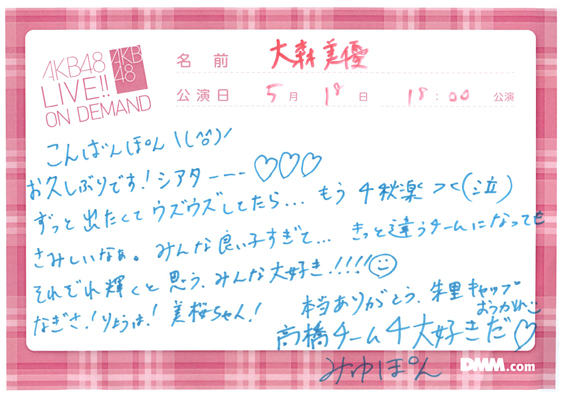 AKB48
LIVE!!
ON DEMAND
AKB
48
名前 大森美優
公演日 5月18日 18:00 公演
こんばんぽん\(^o^)/
お久しぶりです!シアターーー♡♡♡
ずっと出たくてウズウズしてたら... もう 4 千秋楽 (泣)
さみしいなぁ。みんな良い子すぎて... きっと違うチームになっても
それぞれ輝くと思う。みんな大好き!!!!☺
なぎさ!りょうは!美桜ちゃん! 本当ありがとう。朱里キャップ
おつかれ
高橋チーム4大好きだ♡
みゆぽん
DMM.com